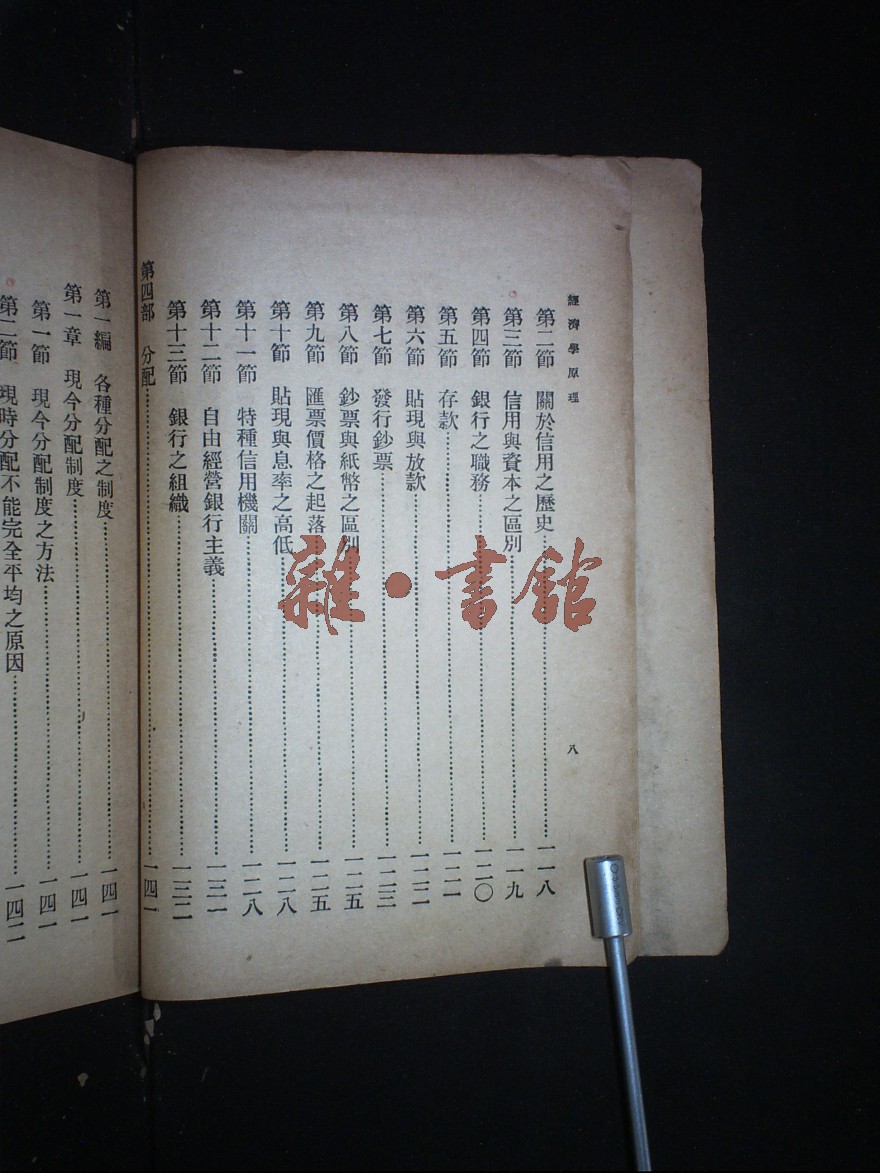 經濟學原理
八
第二節 關於信用之歷史……一一八
第三節 信用與資本之區別……一一九
第四節 銀行之職務……一二〇
第五節 存款……一二一
第六節 貼現與放款……一二二
第七節 發行鈔票……一二三
第八節 鈔票與紙幣之區別……一二五
第九節 匯票價格之起落……一二五
第十節 貼現與息率之高低……一二八
第十一節 特種信用機關……一二八
第十二節 自由經營銀行主義……一三一
第十三節 銀行之組織……一三二
第四部 分配……一四一
第一編 各種分配之制度……一四一
第一章 現今分配制度……一四一
第一節 現今分配制度之方法……一四一
第二節 現時分配不能完全平均之原因……一四二
雜·書館